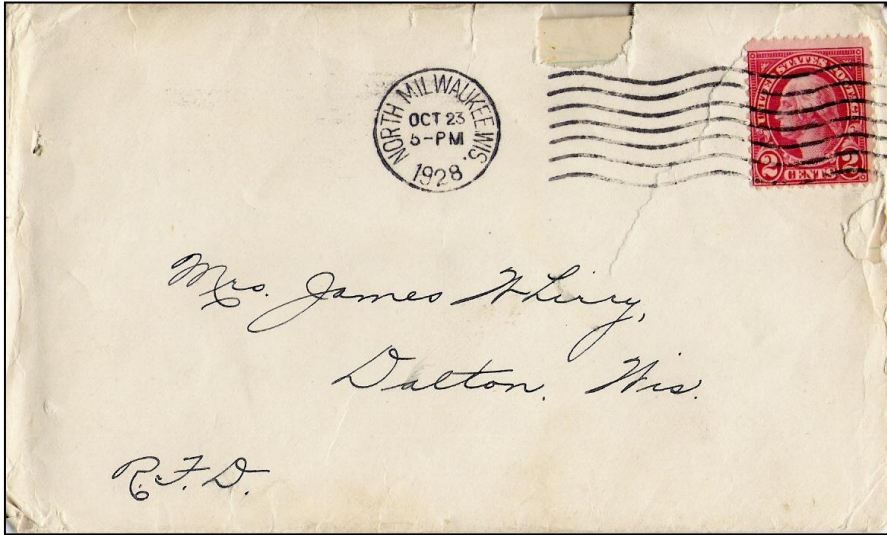 NORTH MILWAUKEE, WIS.
OCT 23
5-PM
1928
UNITED STATES POSTAGE
2 CENTS 2
Mrs. James Whirry,
Dalton, Wis.
R.F.D.